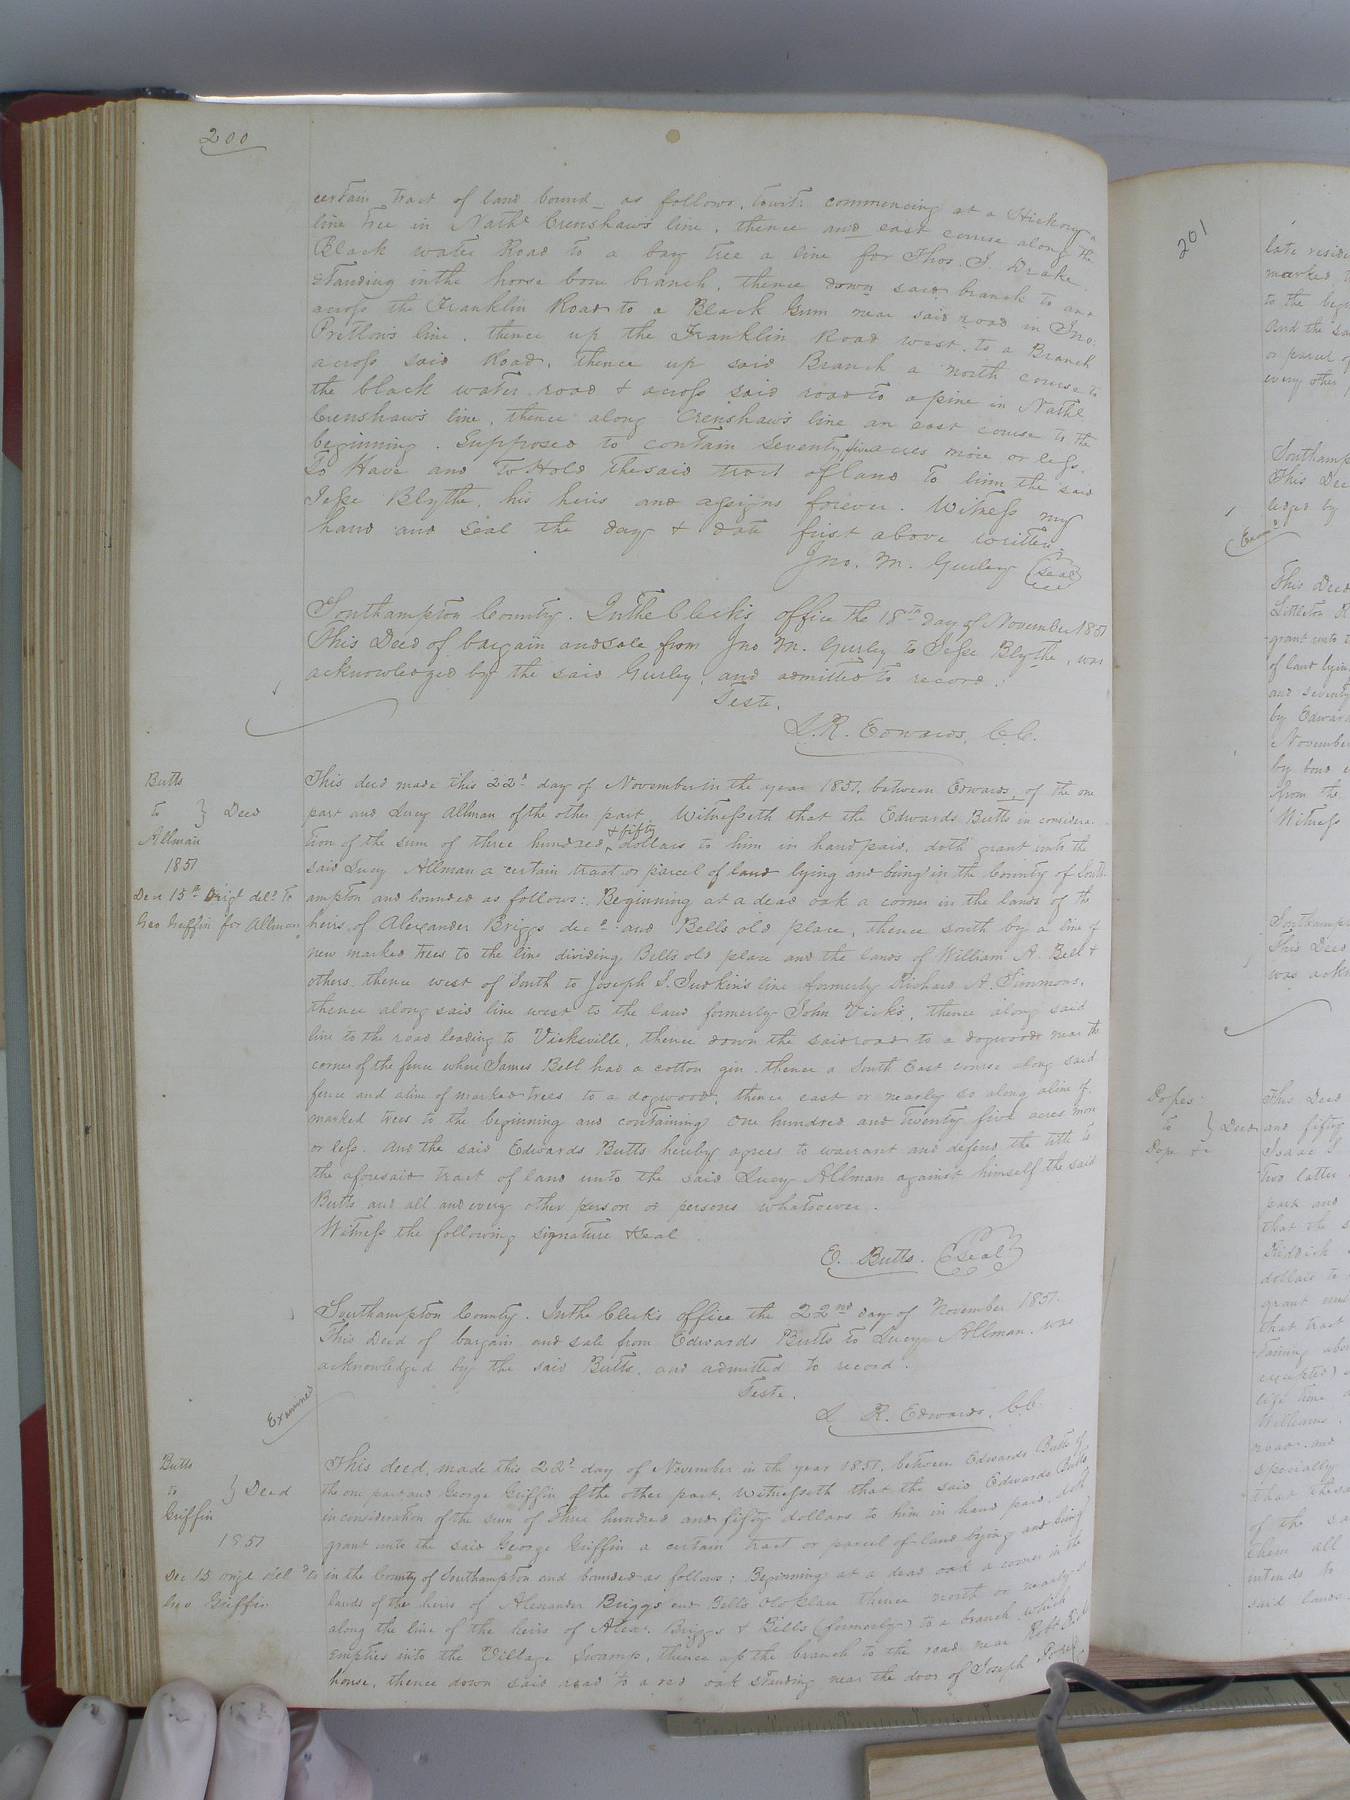 200
certain tract of land bound_ as follows, towit: commencing at a Hickory a
line tree in Nathl Crenshaws line, thence and east course along the
Black water Road to a bay tree a line for Thos. J. Drake
standing in the horse bone branch, thence down said branch to and
across the Franklin Road to a Black Gum near said road in Jno.
Pretlow's line, thence up the Franklin Road west, to a Branch
across said Road, thence up said Branch a north course to
the black water road & across said road to a pine in Nathl
Crenshaw's line, thence along Crenshaw's line an east course to the
beginning. Supposed to contain seventy five acres more or less.
To Have and To Hold the said tract of land to him the said
Jesse Blythe, his heirs and assigns forever. Witness my
hand and seal the day & date first above written
Jno. M. Gurley (Seal)
Southampton County. In the Clerk's office the 18th day of November 1851
This Deed of bargain and sale from Jno M. Gurley to Jesse Blythe, was
acknowledged by the said Gurley, and admitted to record.
Teste,
L. R. Edwards, C.C.
Butts
to } Deed
Allman
1851
Dec 15th Origl deld to
Geo Griffin for Allman
This deed made this 22d day of November in the year 1851, between Edwards_ of the one
part and Lucy Allman of the other part. Witnesseth that the Edwards Butts in considera-
tion of the sum of three hundred & fifty dollars to him in hand paid, doth grant unto the
said Lucy Allman a certain tract or parcel of land lying and being in the County of South-
ampton and bounded as follows: Beginning at a dead oak a corner in the lands of the
heirs of Alexander Briggs decd and Bells old place, thence south by a line of
new marked trees to the line dividing Bells old place and the lands of William A. Bell &
others thence west of South to Joseph S. Judkin's line formerly Richard A. Simmons,
thence along said line west to the land formerly John Vick's, thence along said
line to the road leading to Vicksville, thence down the said road to a dogwood near the
corner of the fence where James Bell had a cotton gin thence a South East course along said
fence and a line of marked trees to a dogwood, thence east or nearly so along a line of
marked trees to the beginning and containing one hundred and twenty five acres more
or less. And the said Edwards Butts hereby agrees to warrant and defend the title to
the aforesaid tract of land unto the said Lucy Allman against himself the said
Butts and all and every other person or persons whatsoever.
Witness the following signature & seal
E. Butts. (Seal)
Southampton County. In the Clerk's office the 22nd day of November 1851.
This Deed of bargain and sale from Edwards Butts to Lucy Allman was
acknowledged by the said Butts, and admitted to record.
Teste,
L. R. Edwards, C.C.
Examined
Butts
to } Deed
Griffin
1851
Dec 15 origl deld to
Geo Griffin
This deed, made this 22d day of November in the year 1851, between Edwards Butts of
the one part and George Griffin of the other part, Witnesseth that the said Edwards Butts
in consideration of the sum of three hundred and fifty dollars to him in hand paid, doth
grant unto the said George Griffin a certain tract or parcel of land lying and being
in the County of Southampton and bounded as follows: Beginning at a dead oak a corner in the
lands of the heirs of Alexander Briggs and Bells old place thence north or nearly so
along the line of the heirs of Alexr. Briggs & Bells (formerly) to a branch which
empties into the Village Swamp, thence up the branch to the road near
house, thence down said road to a red oak standing near the door of Joseph
201
late resid
marked
to the beg
And the sa
or parcel of
every other
Southamp
This Dee
ledged by
This Deed
Littleton
grant unto t
of land lying
and seventy
by Edwar
November
by bond
from the
Witness
Southamp
This Deed
was ackn
Popes
to } Deed
Pope
This Deed
and fifty
Isaac
two latter
part and
that the s
Riddick
dollars to
grant
that tract
taining abo
excepted)
life time
Williams
road and
specially
that
of the sa
them all
intends to
said lands